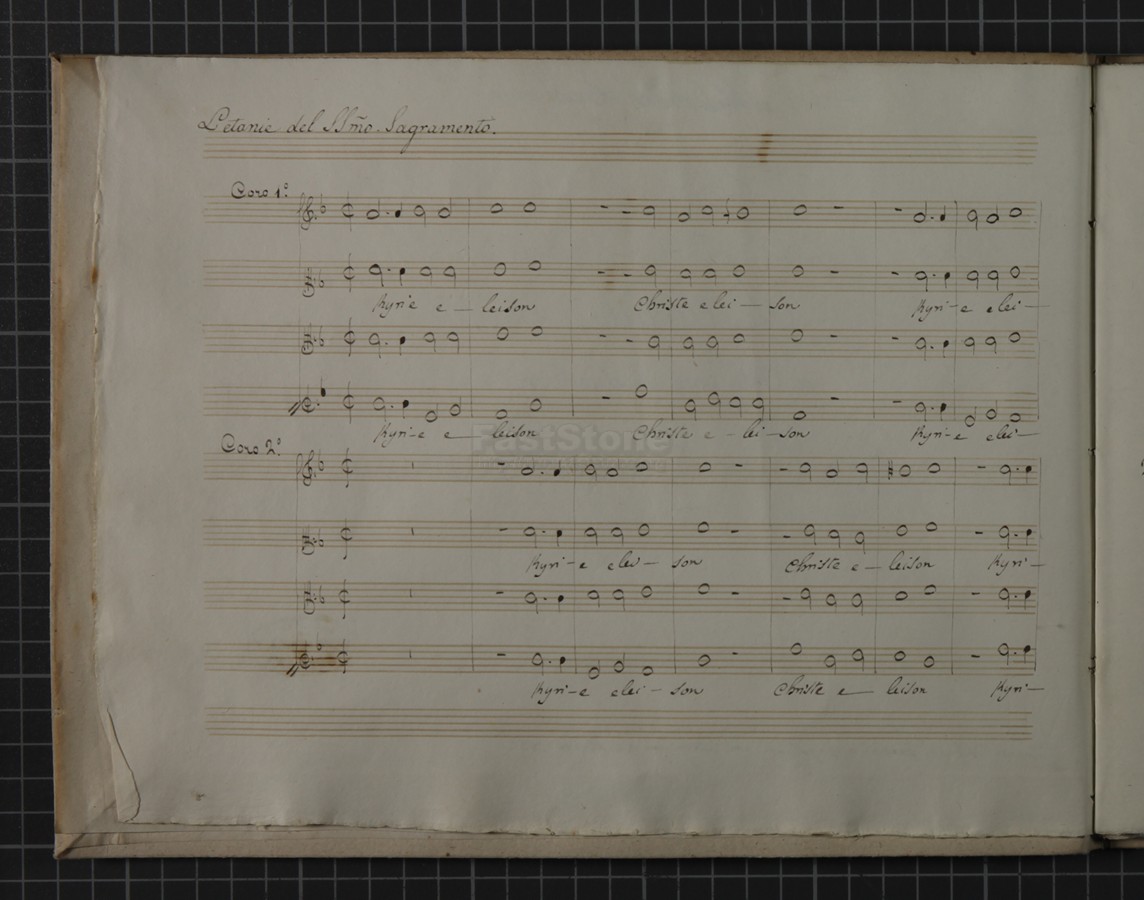 Letanie del SSm̃o. Sagramento.
Coro 1.º
Kyrie e — leison Christe elei — son Kyri — e elei —
Kyri — e e — leison Christe e — lei — son Kyri — e elei —
FastStone
Coro 2.º
Kyri — e elei — son Christe e — leison Kyri —
Kyri — e elei — son Christe e — leison Kyri —